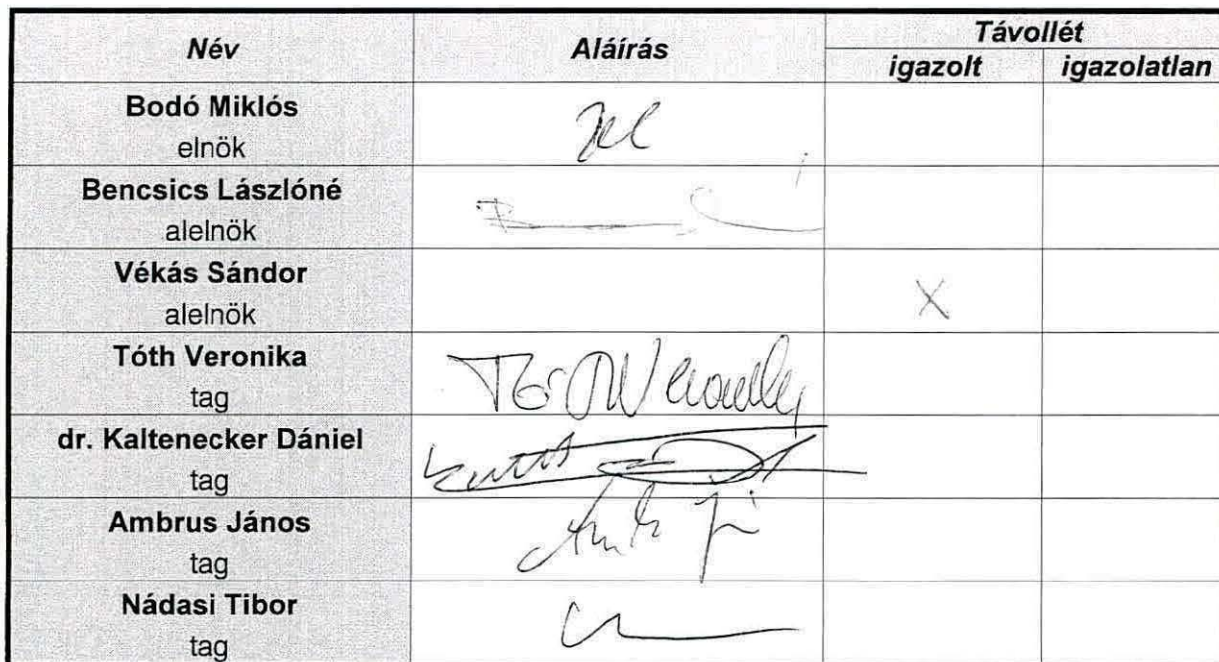 Név Aláírás Távollét
igazolt igazolatlan
Bodó Miklós
elnök
Bencsics Lászlóné
alelnök
Vékás Sándor
alelnök X
Tóth Veronika
tag
dr. Kaltenecker Dániel
tag
Ambrus János
tag
Nádasi Tibor
tag